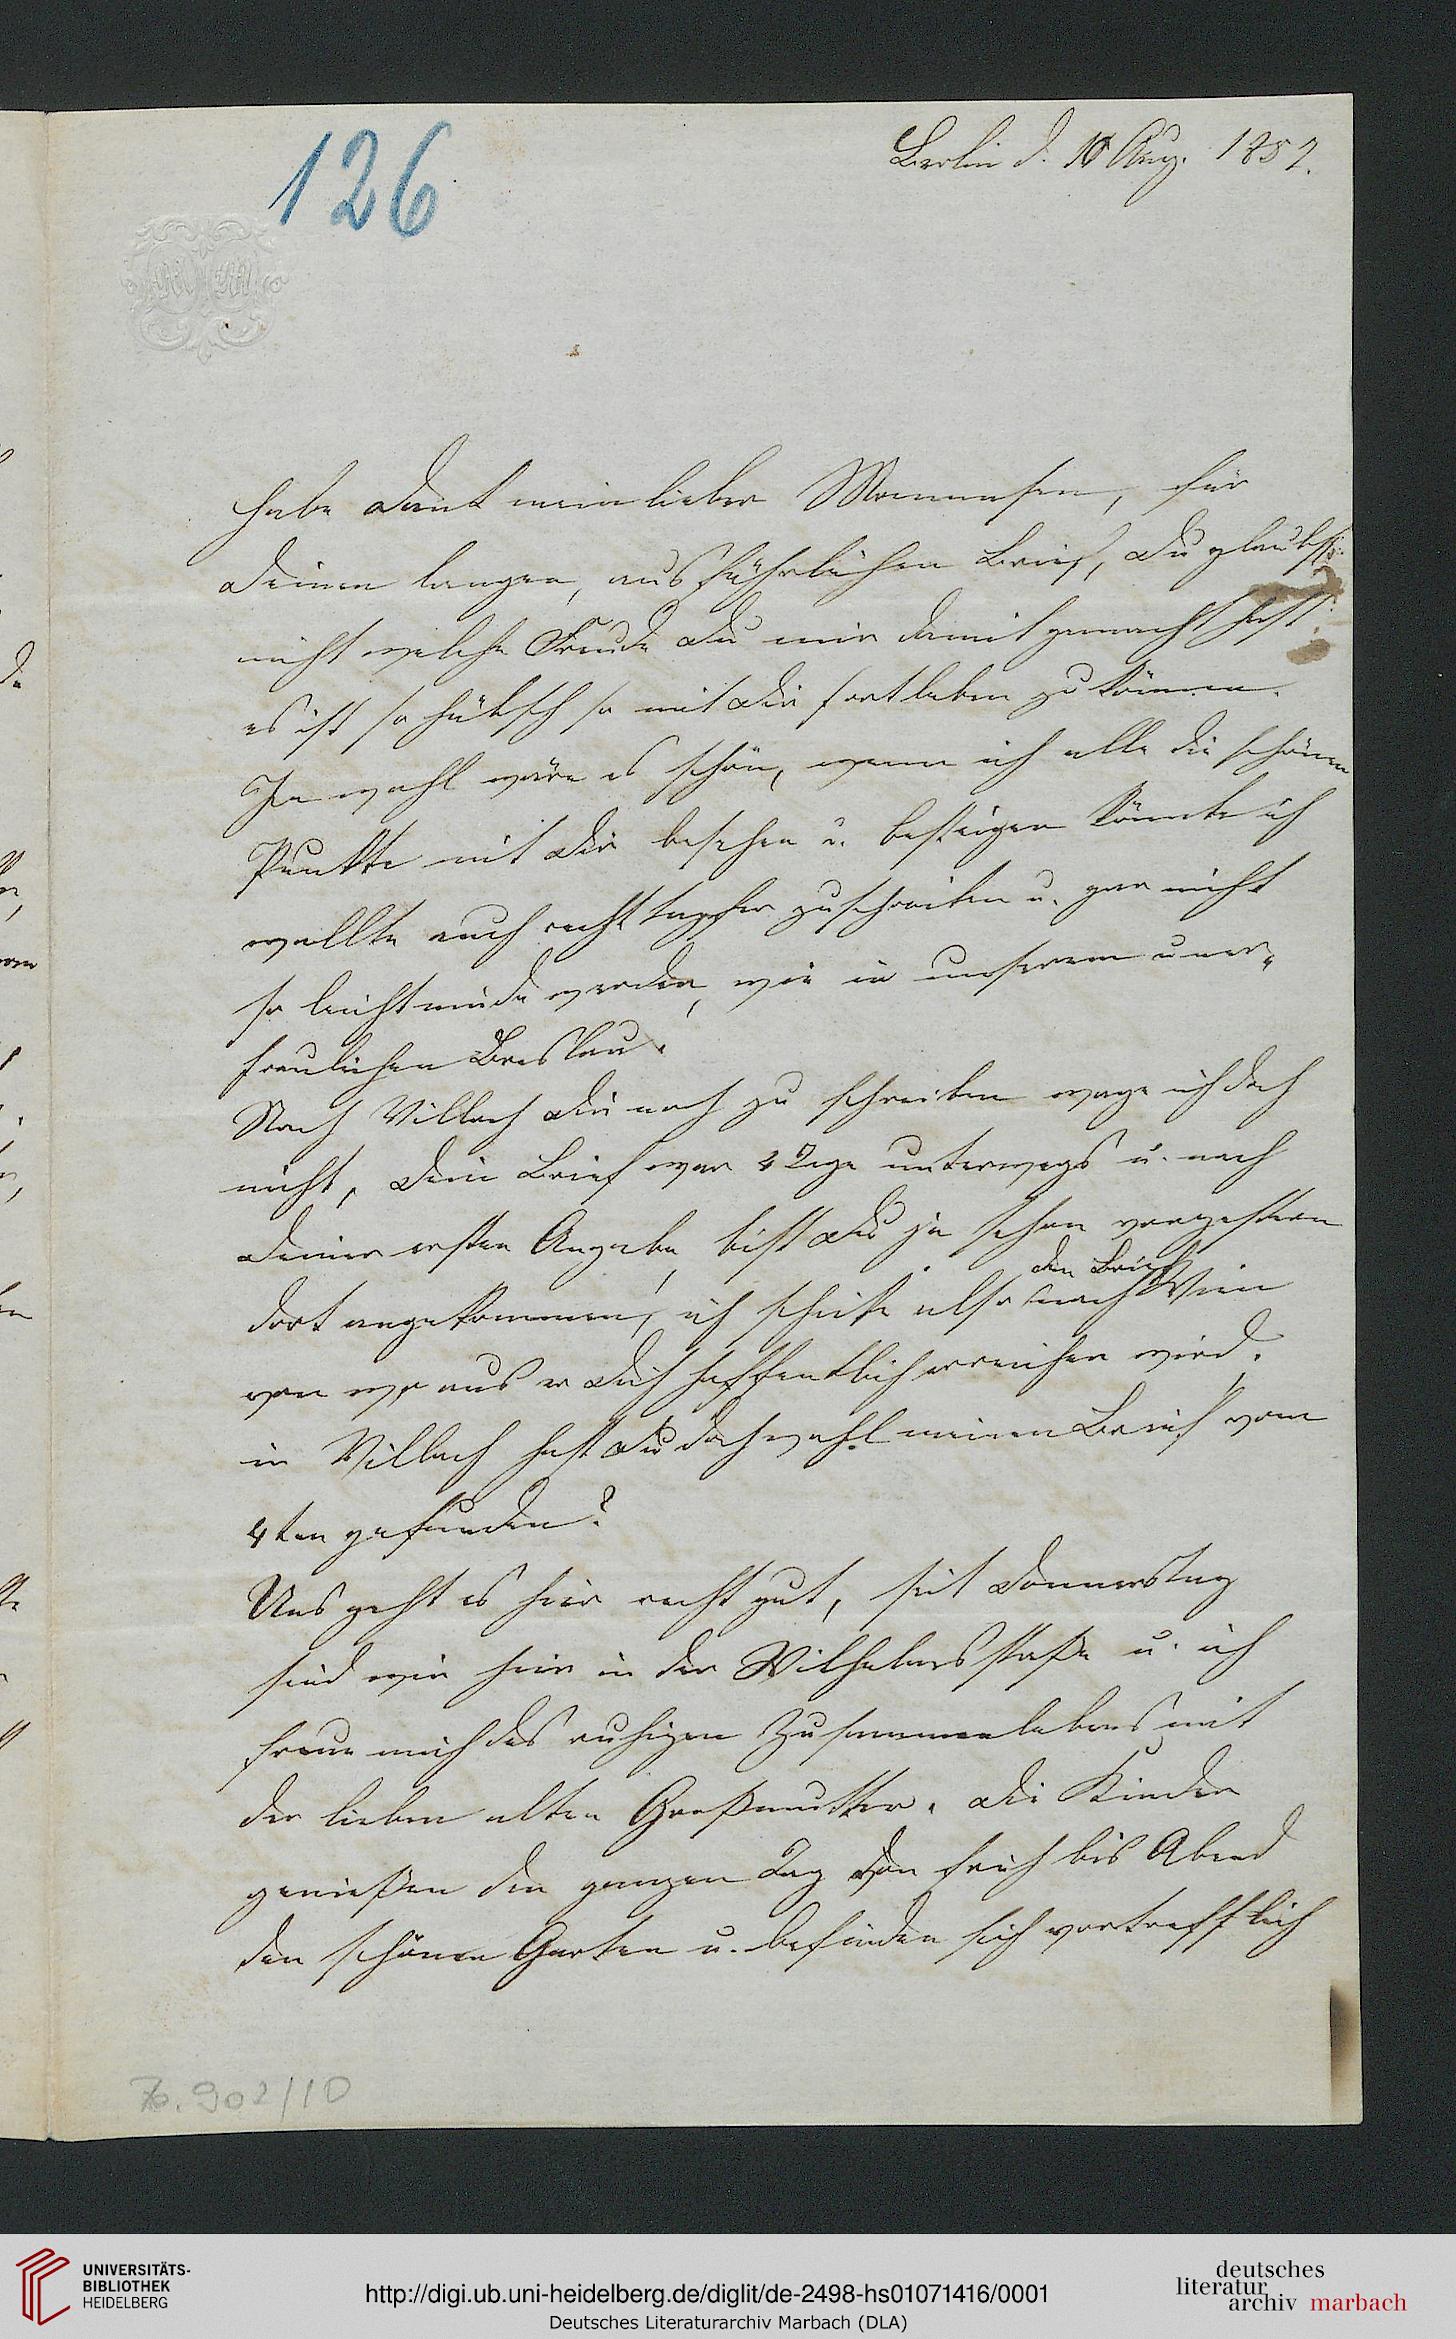 126
Berlin d. 10 Aug. 1857.
MM
Habe Dank mein lieber Mommsen, für
Deinen langen, ausführlichen Brief, Du glaubst
nicht welche Freude Du mir damit gemacht hast.
es ist so hübsch so mit Dir fortleben zu können.
Ja wohl wäre es schön, wenn ich alle die schönen
Punkte mit Dir besehen u. besteigen könnte ich
wollte auch recht tapfer zuschreiten u. gar nicht
so leicht müde werden, wie in unserem uner-
freulichen Breslau.
Nach Villach Dir noch zu schreiben wage ich doch
nicht, Dein Brief war 4 Tage unterwegs u. nach
Deiner ersten Angabe, bist Du ja schon vorgestern
dort angekommen, ich schicke also den Brief nach Wien
von wo aus er Dich hoffentlich erreichen wird.
in Villach hast Du doch wohl meinen Brief vom
4ten gefunden?
Uns geht es hier recht gut, seit Donnerstag
sind wir hier in der Wilhelmsstraße u. ich
freue mich des ruhigen Zusammenlebens mit
der lieben alten Großmutter. Die Kinder
genießen den ganzen Tag von früh bis Abend
den schönen Garten u. befinden sich vortrefflich
Z. 902/10
UNIVERSITÄTS-
BIBLIOTHEK
HEIDELBERG
http://digi.ub.uni-heidelberg.de/diglit/de-2498-hs01071416/0001
Deutsches Literaturarchiv Marbach (DLA)
deutsches
literatur
archiv marbach